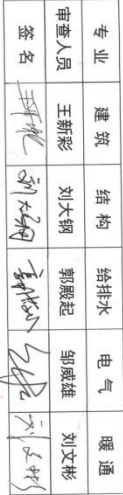 专业 建筑 结构 给排水 电气 暖通
审查人员 王新彩 刘大钢 郭殿起 邹威雄 刘文彬
签名 刘大钢 刘文彬